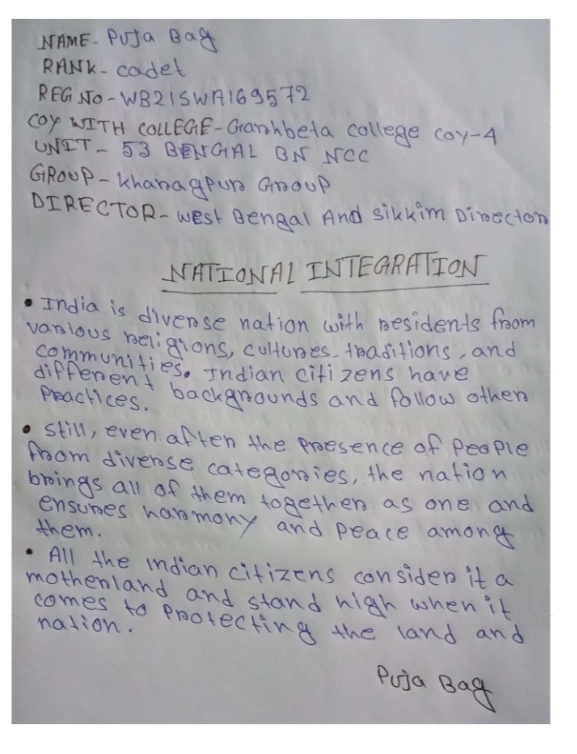 NAME- Puja Bag
RANK- cadet
REG NO - WB21SWA169572
COY WITH COLLEGE- Garhbeta college coy-4
UNIT- 53 BENGAL BN NCC
GROUP- kharagpur Group
DIRECTOR- west Bengal And sikkim Director
NATIONAL INTEGRATION
• India is diverse nation with residents from
various religions, cultures. traditions, and
communities. Indian citizens have
different backgrounds and follow other
Practices.
• still, even after the presence of People
from diverse categories, the nation
brings all of them together as one and
ensures harmony and peace among
them.
• All the indian citizens consider it a
motherland and stand high when it
comes to protecting the land and
nation.
Puja Bag